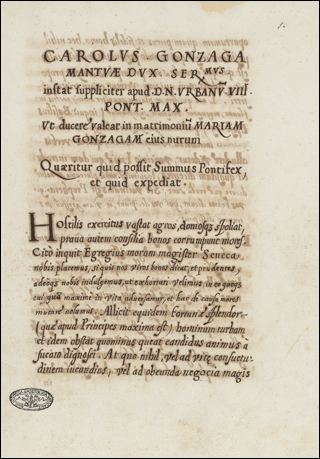 1.
CAROLVS GONZAGA
MANTVÆ DVX. SER.MVS
instat suppliciter apud D.N. VRBANV̄ VIII.
PONT. MAX.
Vt ducere valeat in matrimoniū MARIAM
GONZAGAM eius nurum
Quæritur quid possit Summus Pontifex,
et quid expediat.
Hostilis exercitus vastat agros, domosqs spoliat,
praua autem consilia bonos corrumpunt mores.
Cito inquit Egregius morum magister Seneca
nobis placemus, si quis nos viros bonos dicat, et prudentes,
adeoqs nobis indulgemus, ut exhortari velimus in ea quoqs
cui quā maxime in vita aduersamur, et hac de causa mores
mutare nolumus. Allicit equidem fortunæ splendor
(quæ apud Principes maxima est) hominum turbam
et idem obstat quominus queat candidus animus à
fucato dignosci. At quo nihil, vel ad vitę consuetu-
dinem iucundius, vel ad obeunda negocia magis